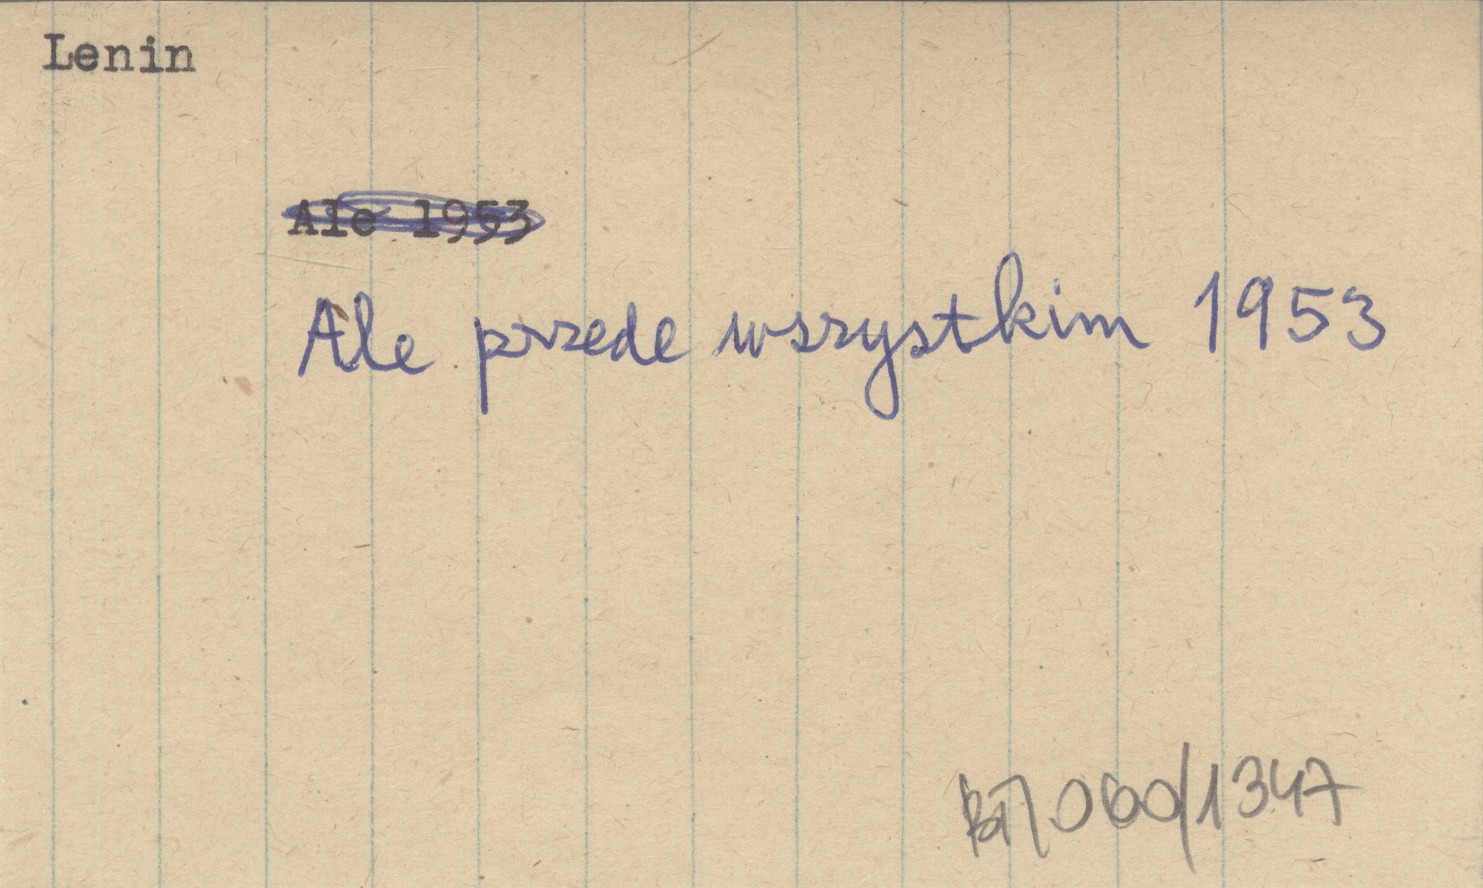 Lenin
Ale 1953
Ale przede wszystkim 1953
060/1347